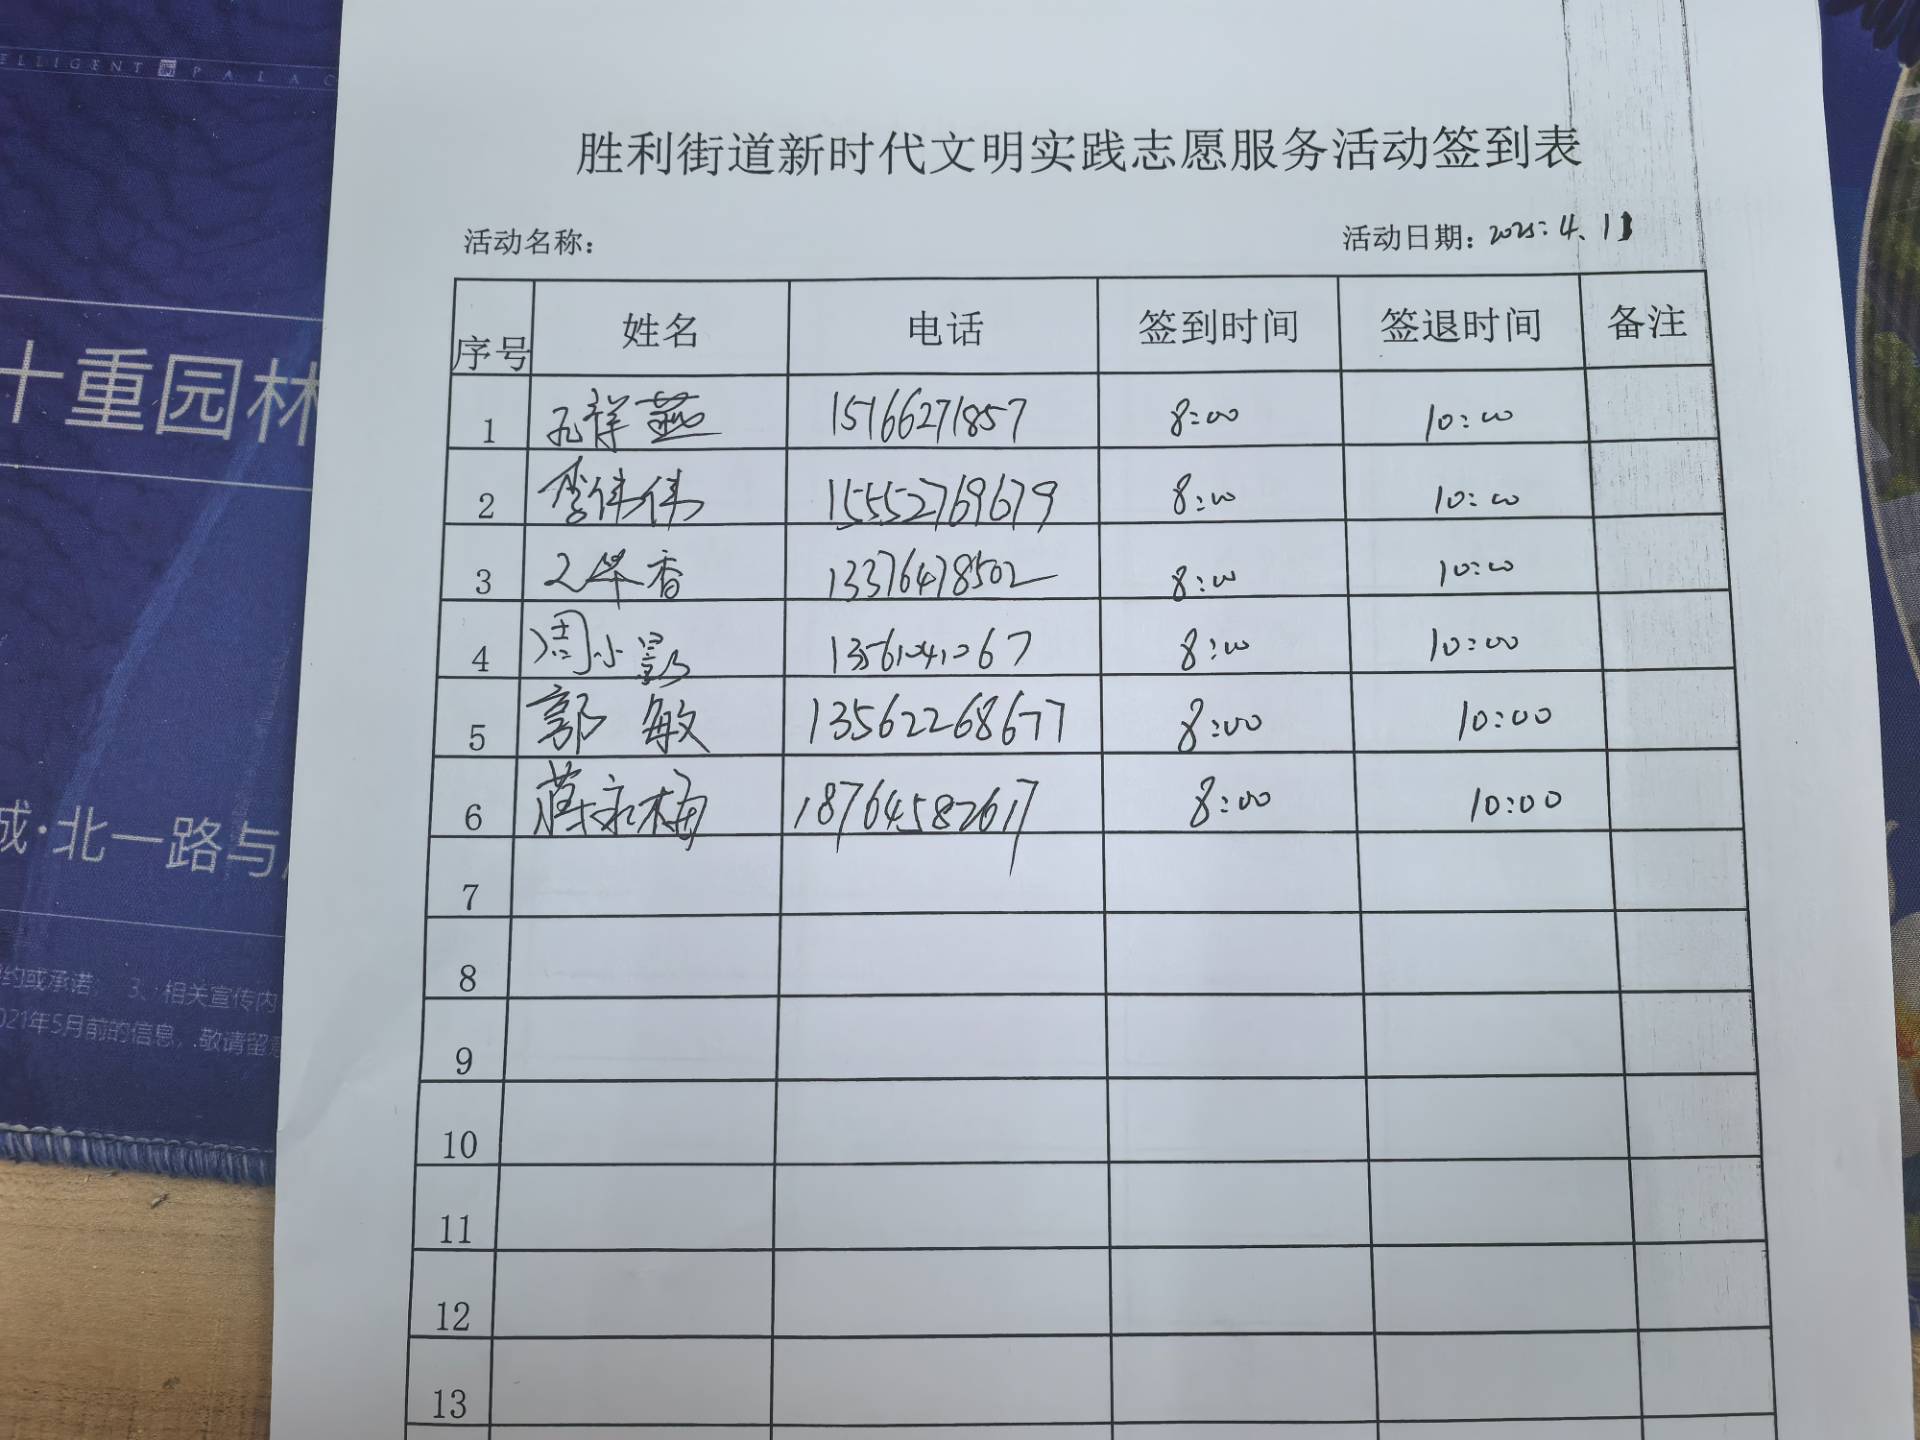 ELLIGENT PALAC
十重园林
城·北一路与
约或承诺； 3、相关宣传内
021年5月前的信息，敬请留意
胜利街道新时代文明实践志愿服务活动签到表
活动名称： 活动日期：2025.4.13
序号 姓名 电话 签到时间 签退时间 备注
1 孔祥燕 15166271857 8:00 10:00
2 李伟伟 15552769679 8:00 10:00
3 华香 13376478502 8:00 10:00
4 周小影 8:00 10:00
5 郭敏 13562268677 8:00 10:00
6 蒋永梅 18764582617 8:00 10:00
7
8
9
10
11
12
13